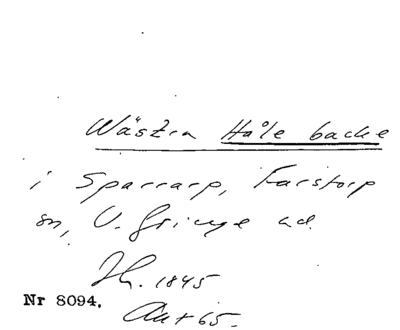 Wästra Håle backe
i Sparrarp, Farstorp
sn, V. Göinge hd.
Jh. 1845
Nr 8094.
Akt 65.